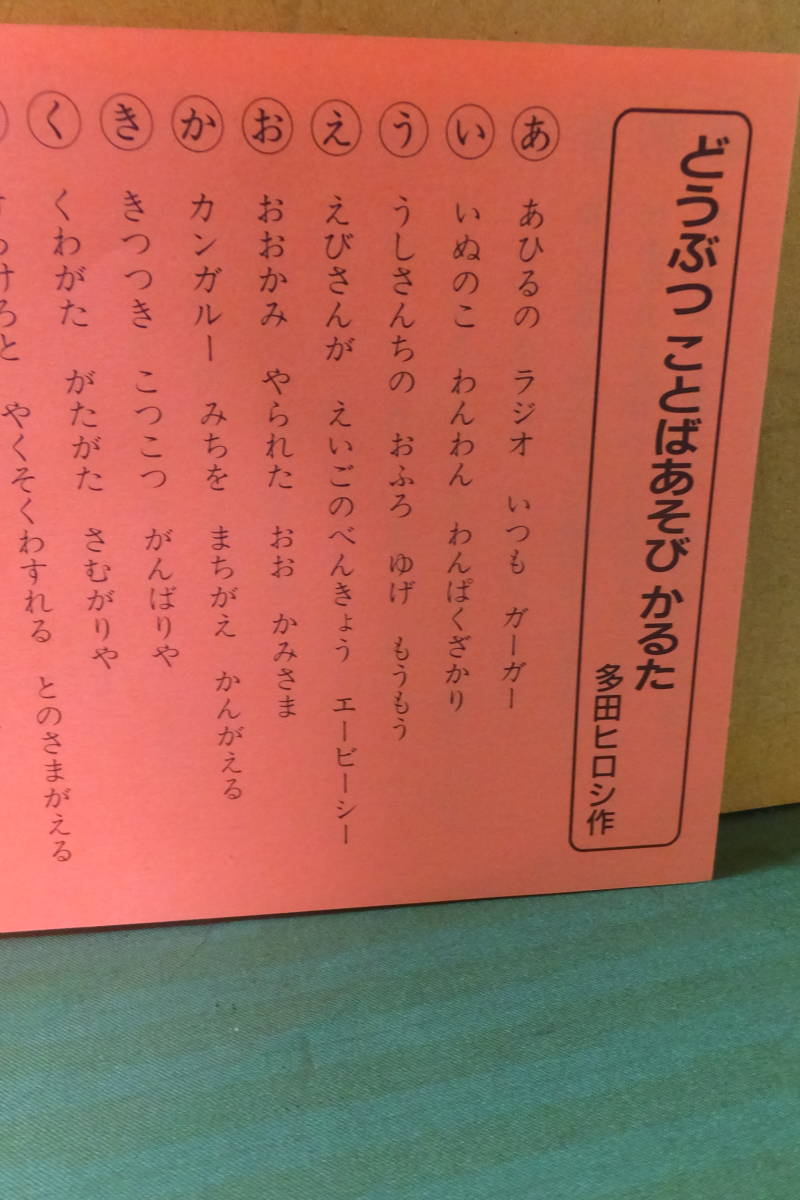 どうぶつ ことばあそび かるた
多田ヒロシ作
あ あひるの ラジオ いつも ガーガー
い いぬのこ わんわん わんぱくざかり
う うしさんちの おふろ ゆげ もうもう
え えびさんが えいごのべんきょう エービーシー
お おおかみ やられた おお かみさま
か カンガルー みちを まちがえ かんがえる
き きつつき こつこつ がんばりや
く くわがた がたがた さむがりや
やくそくわすれる とのさまがえる